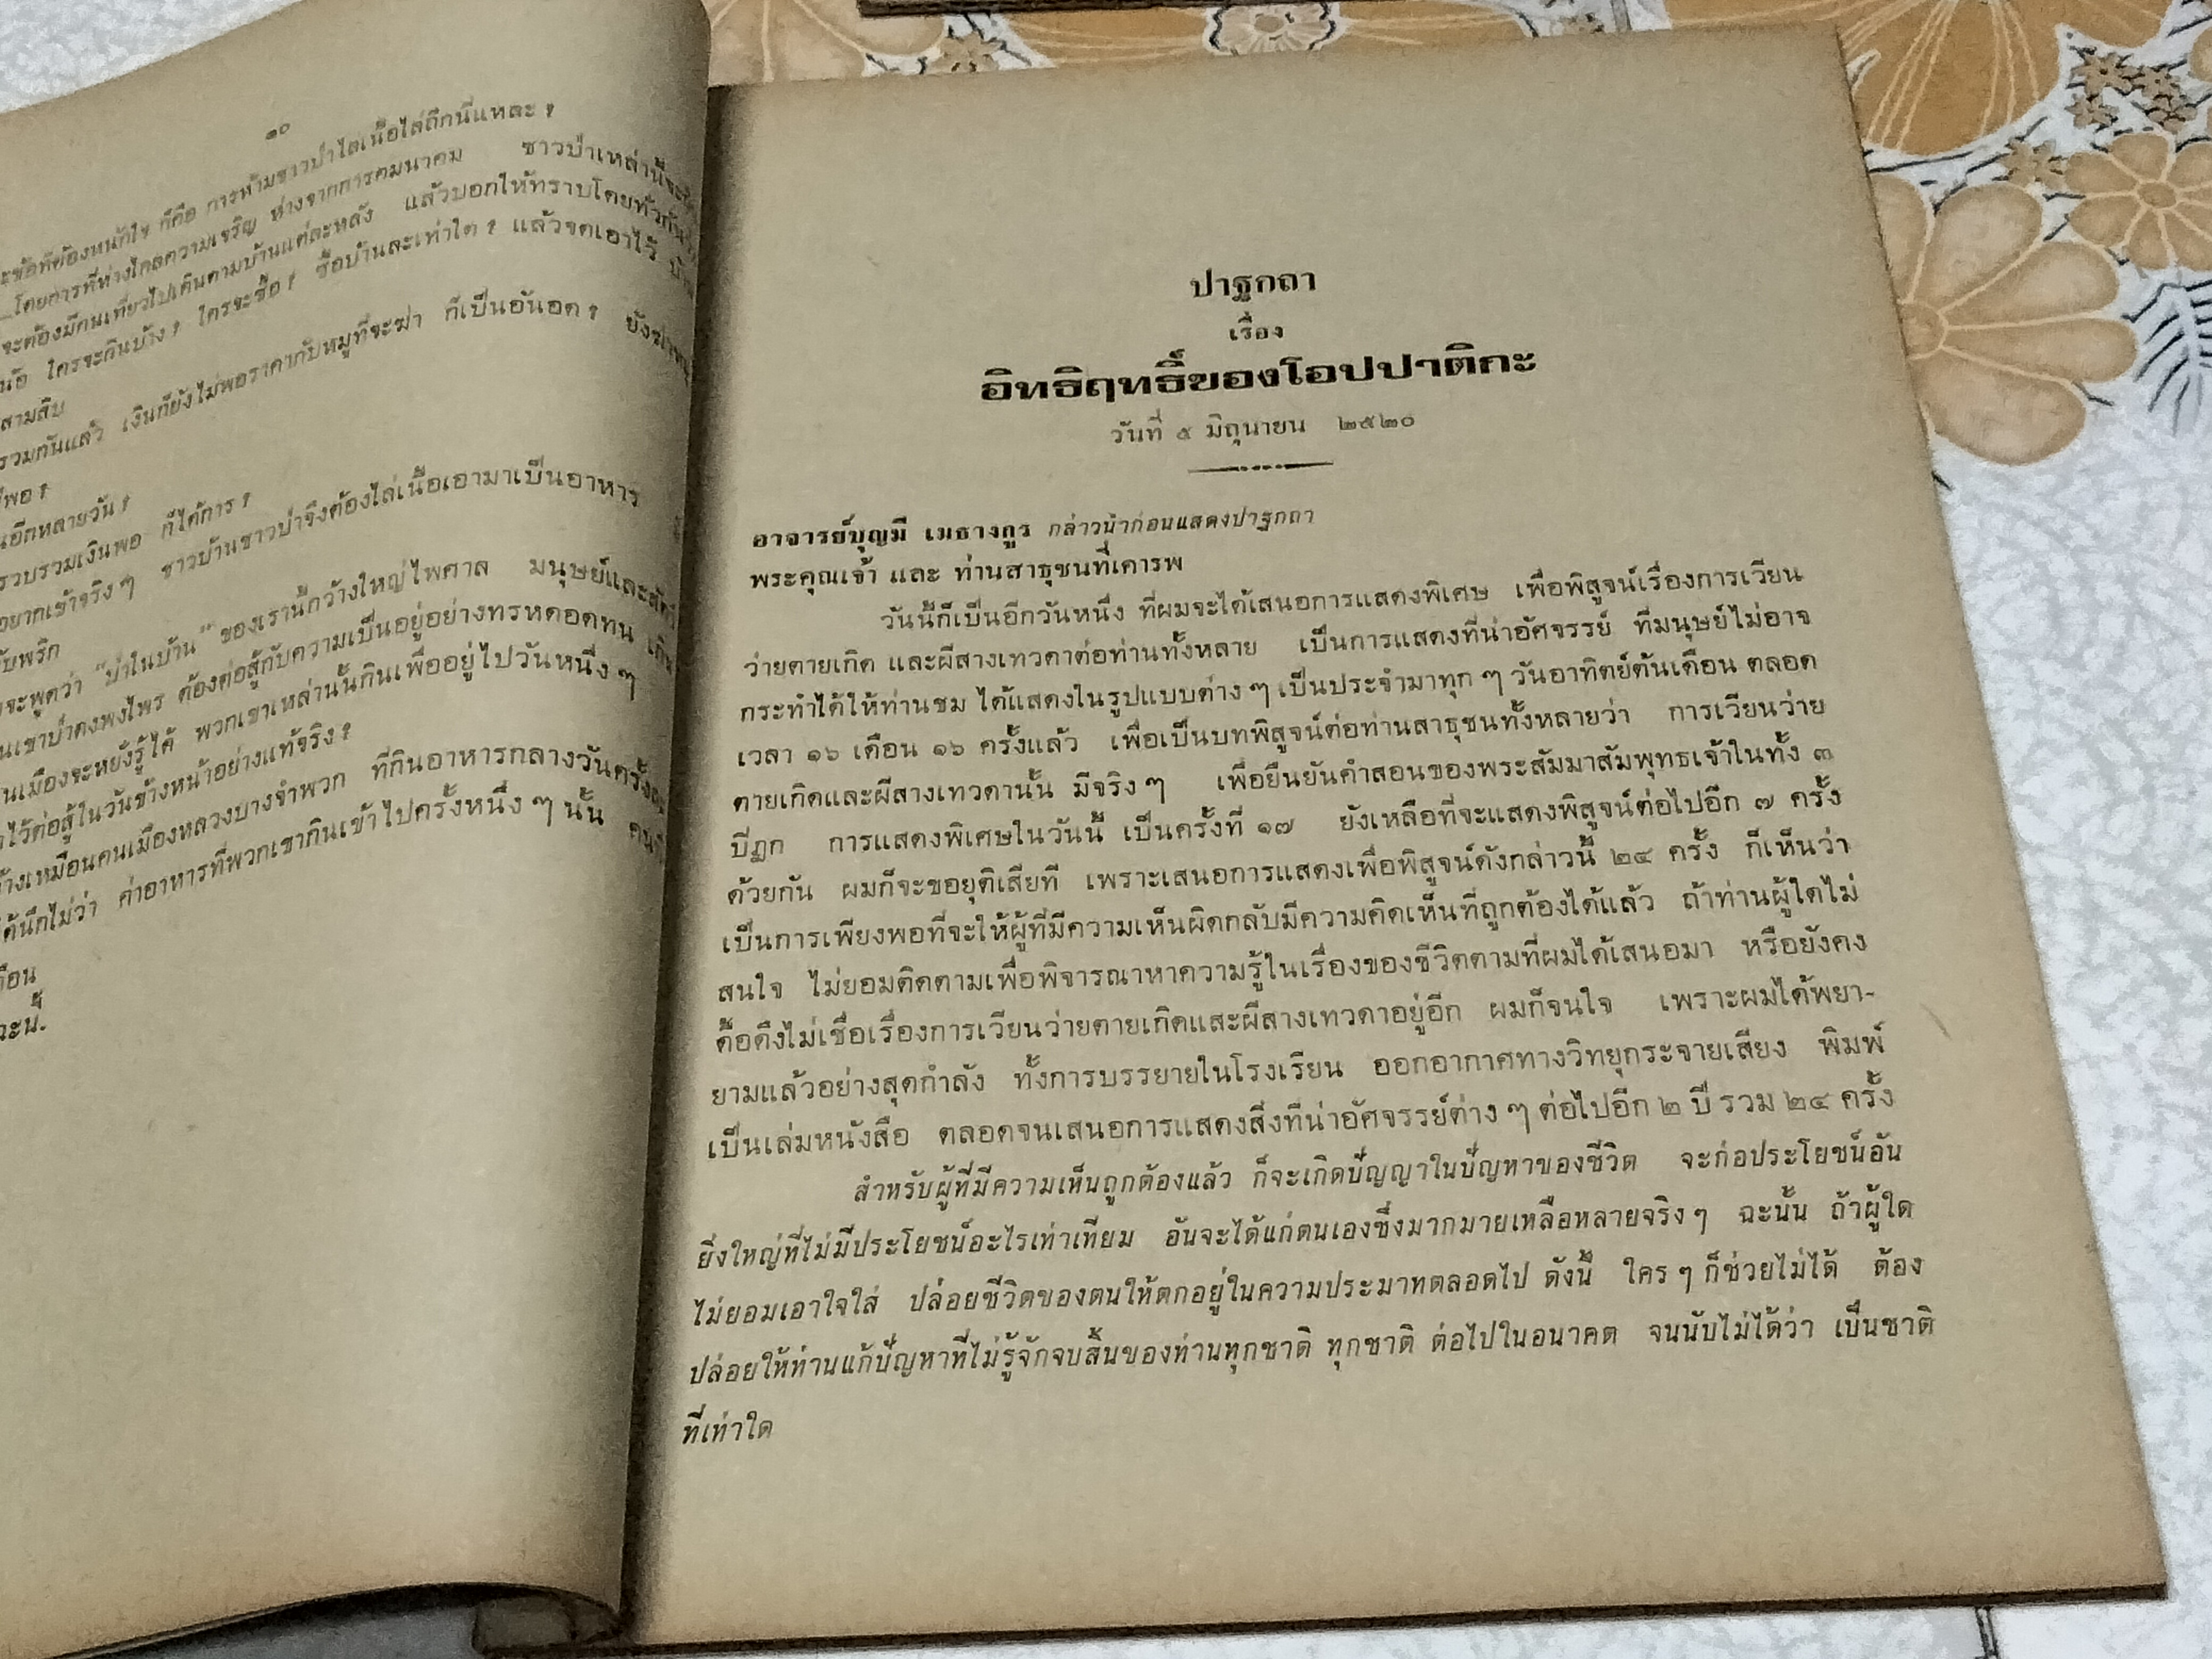 ๑๐
การห้ามชาวป่าไล่เนื้อไล่ถึกนี่แหละ ?
ข้อที่ต้องหนักใจ ก็คือ
โดยการที่ห่างไกลความเจริญ ห่างจากการคมนาคม ชาวป่าเหล่านี้จะ
จะต้องมีคนเที่ยวไปเดินตามบ้านแต่ละหลัง แล้วบอกให้ทราบโดยทั่วกัน
ใครจะกินบ้าง ? ใครจะซื้อ ? ซื้อบ้านละเท่าใด ? แล้วจดเอาไว้
สามสิบ
รวมกันแล้ว เงินก็ยังไม่พอราคากับหมูที่จะฆ่า ก็เป็นอันอด ?
พอ ?
อีกหลายวัน ?
รวบรวมเงินพอ ก็ได้การ ?
อยากเข้าจริง ๆ ชาวบ้านชาวป่าจึงต้องไล่เนื้อเอามาเป็นอาหาร
พริก
จะพูดว่า “ป่าในบ้าน” ของเรานี้กว้างใหญ่ไพศาล มนุษย์และสัตว์
เขาป่าดงพงไพร ต้องต่อสู้กับความเป็นอยู่อย่างทรหดอดทน
เมืองจะหยั่งรู้ได้ พวกเขาเหล่านั้นกินเพื่ออยู่ไปวันหนึ่ง ๆ
ไว้ต่อสู้ในวันข้างหน้าอย่างแท้จริง ?
เหมือนคนเมืองหลวงบางจำพวก ที่กินอาหารกลางวันครั้งละ
นึกไม่ว่า ค่าอาหารที่พวกเขากินเข้าไปครั้งหนึ่ง ๆ นั้น
ปาฐกถา
เรื่อง
อิทธิฤทธิ์ของโอปปาติกะ
วันที่ ๕ มิถุนายน ๒๕๒๐
อาจารย์บุญมี เมธางกูร กล่าวนำก่อนแสดงปาฐกถา
พระคุณเจ้า และ ท่านสาธุชนที่เคารพ
วันนี้ก็เป็นอีกวันหนึ่ง ที่ผมจะได้เสนอการแสดงพิเศษ เพื่อพิสูจน์เรื่องการเวียน
ว่ายตายเกิด และผีสางเทวดาต่อท่านทั้งหลาย เป็นการแสดงที่น่าอัศจรรย์ ที่มนุษย์ไม่อาจ
กระทำได้ให้ท่านชม ได้แสดงในรูปแบบต่าง ๆ เป็นประจำมาทุก ๆ วันอาทิตย์ต้นเดือน ตลอด
เวลา ๑๖ เดือน ๑๖ ครั้งแล้ว เพื่อเป็นบทพิสูจน์ต่อท่านสาธุชนทั้งหลายว่า การเวียนว่าย
ตายเกิดและผีสางเทวดานั้น มีจริง ๆ เพื่อยืนยันคำสอนของพระสัมมาสัมพุทธเจ้าในทั้ง ๓
ปิฎก การแสดงพิเศษในวันนี้ เป็นครั้งที่ ๑๗ ยังเหลือที่จะแสดงพิสูจน์ต่อไปอีก ๗ ครั้ง
ด้วยกัน ผมก็จะขอยุติเสียที เพราะเสนอการแสดงเพื่อพิสูจน์ดังกล่าวนี้ ๒๔ ครั้ง ก็เห็นว่า
เป็นการเพียงพอที่จะให้ผู้ที่มีความเห็นผิดกลับมีความคิดเห็นที่ถูกต้องได้แล้ว ถ้าท่านผู้ใดไม่
สนใจ ไม่ยอมติดตามเพื่อพิจารณาหาความรู้ในเรื่องของชีวิตตามที่ผมได้เสนอมา หรือยังคง
ดื้อดึงไม่เชื่อเรื่องการเวียนว่ายตายเกิดและผีสางเทวดาอยู่อีก ผมก็จนใจ เพราะผมได้พยา-
ยามแล้วอย่างสุดกำลัง ทั้งการบรรยายในโรงเรียน ออกอากาศทางวิทยุกระจายเสียง พิมพ์
เป็นเล่มหนังสือ ตลอดจนเสนอการแสดงสิ่งที่น่าอัศจรรย์ต่าง ๆ ต่อไปอีก ๒ ปี รวม ๒๔ ครั้ง
สำหรับผู้ที่มีความเห็นถูกต้องแล้ว ก็จะเกิดปัญญาในปัญหาของชีวิต จะก่อประโยชน์อัน
ยิ่งใหญ่ที่ไม่มีประโยชน์อะไรเท่าเทียม อันจะได้แก่ตนเองซึ่งมากมายเหลือหลายจริง ๆ ฉะนั้น ถ้าผู้ใด
ไม่ยอมเอาใจใส่ ปล่อยชีวิตของตนให้ตกอยู่ในความประมาทตลอดไป ดังนี้ ใคร ๆ ก็ช่วยไม่ได้ ต้อง
ปล่อยให้ท่านแก้ปัญหาที่ไม่รู้จักจบสิ้นของท่านทุกชาติ ทุกชาติ ต่อไปในอนาคต จนนับไม่ได้ว่า เป็นชาติ
ที่เท่าใด